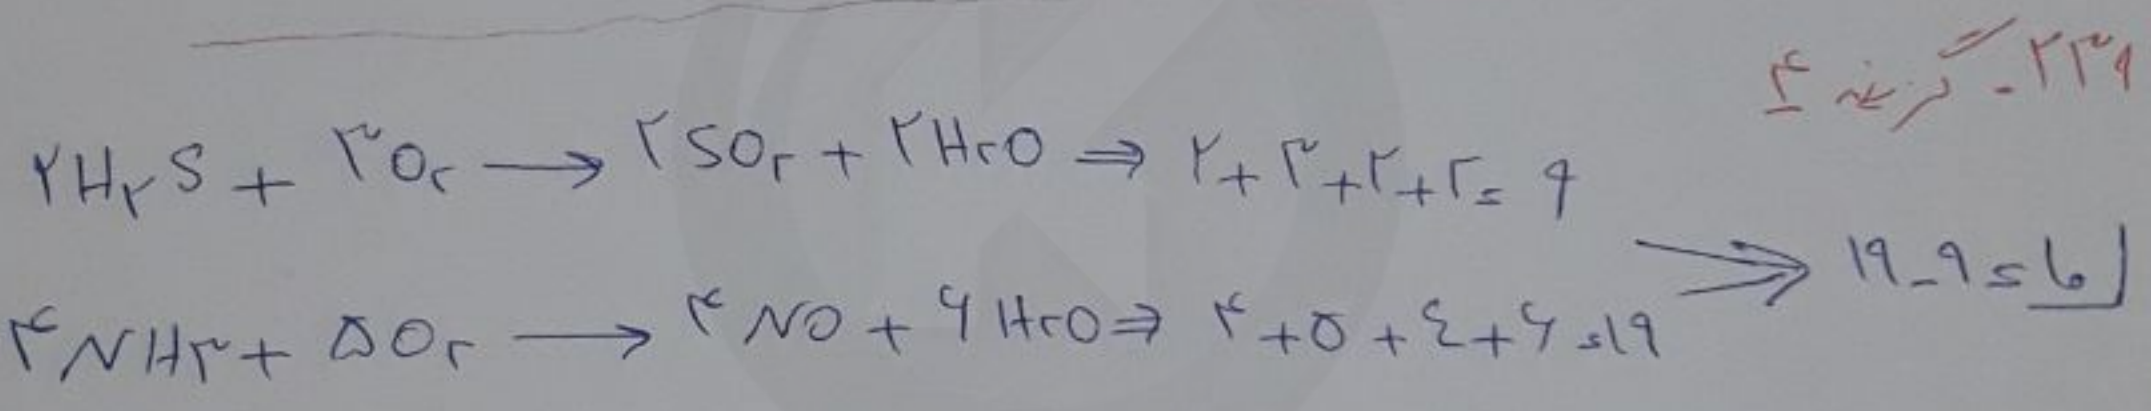 ۲۳۹ـ گزینه ۴
۲H۲S + ۳O۲ → ۲SO۲ + ۲H۲O ⇒ ۲+۳+۲+۲=۹
۴NH۳ + ۵O۲ → ۴NO + ۶H۲O ⇒ ۴+۵+٤+۶=۱۹
⇒ ۱۹-۹=۱۰